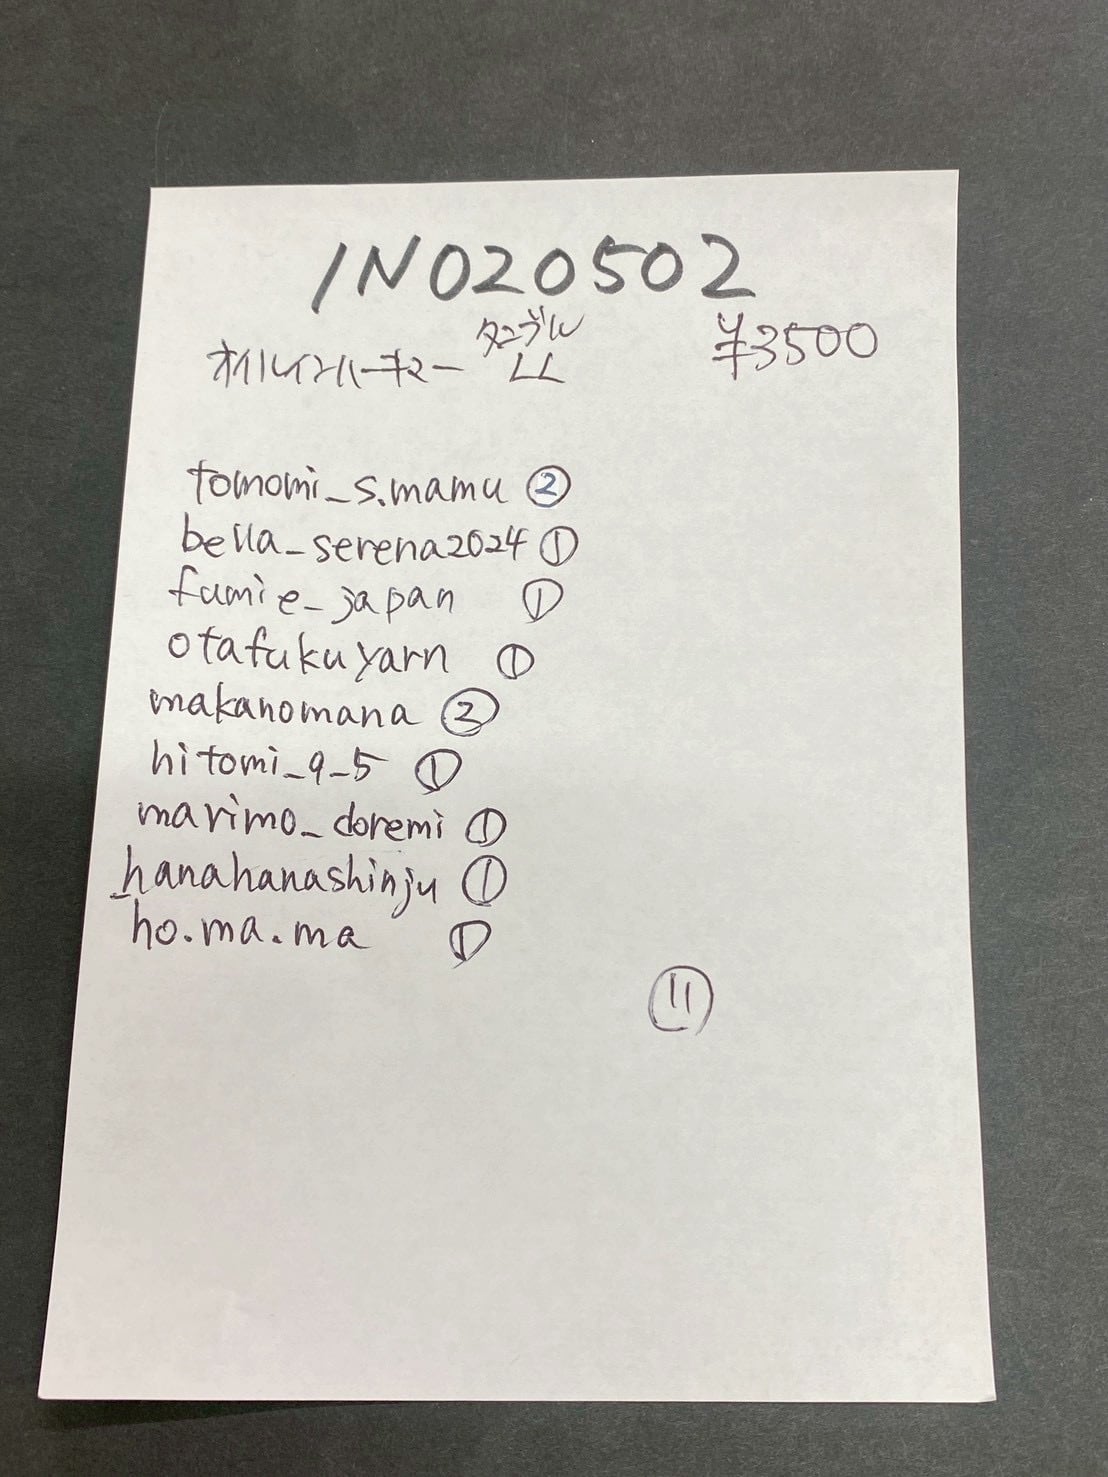 IN020502
タンブル
オイルインハーキマー LL ¥3500
tomomi_s.mamu ②
bella_serena2024 ①
fumie_japan ①
otafukuyarn ①
makanomana ②
hitomi_9_5 ①
marimo_doremi ①
_hanahanashinju ①
ho.ma.ma ①
⑪